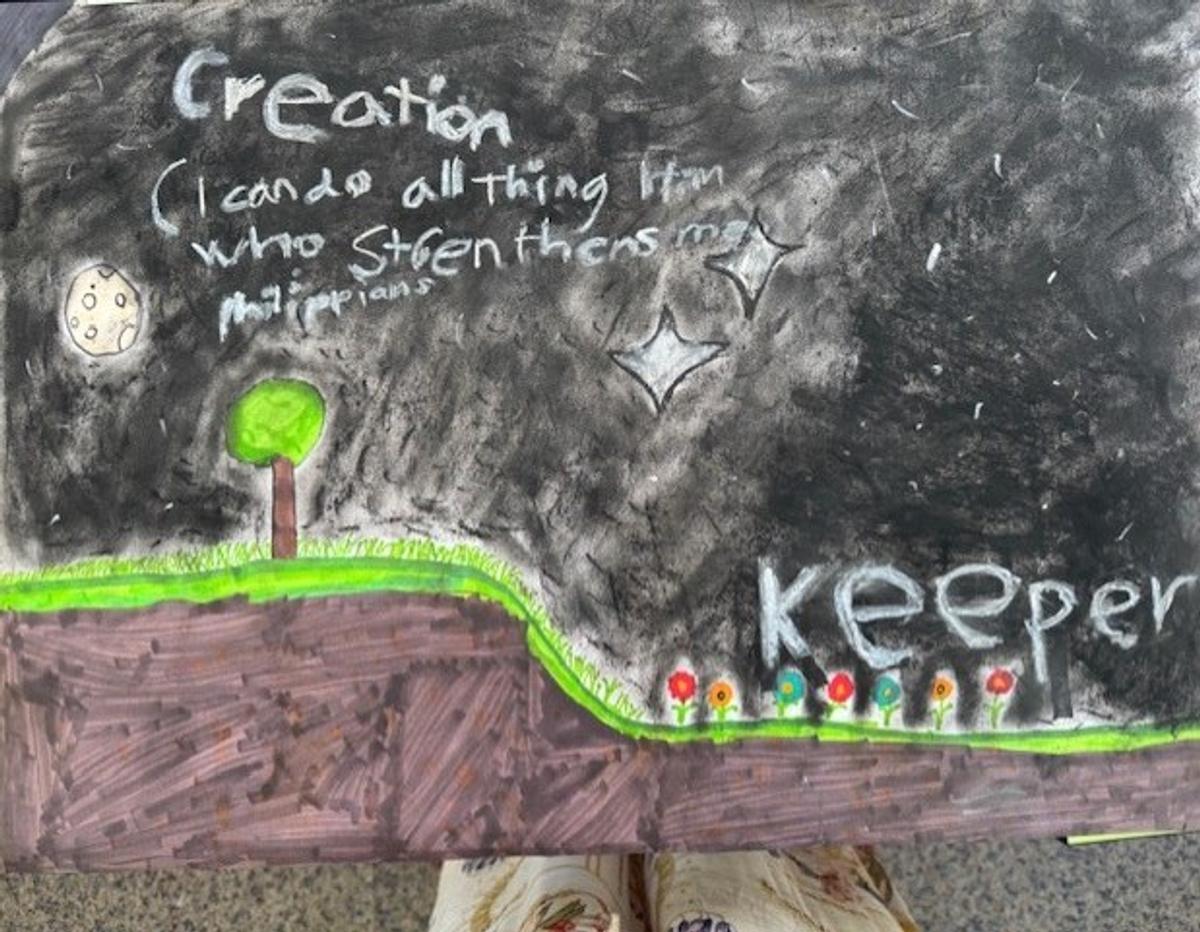 Creation
(I can do all thing Him
who Strenthens me
philippians
Keeper